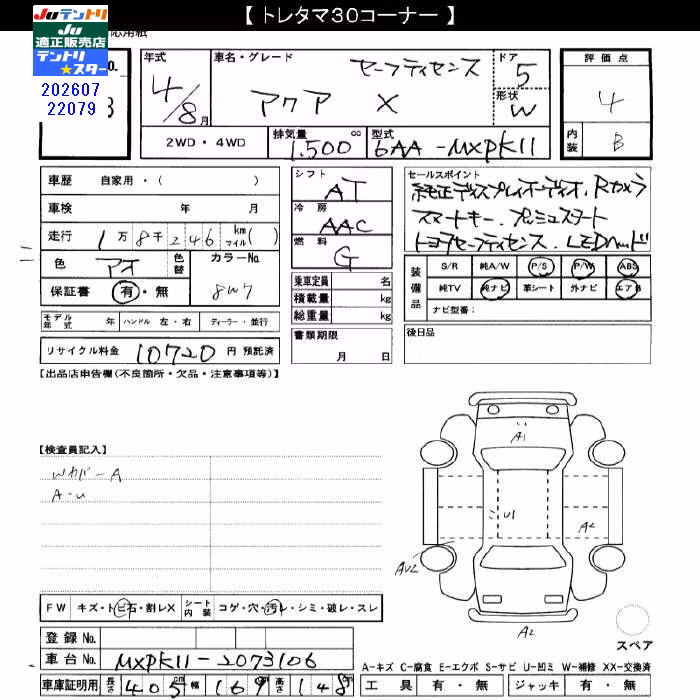 【 トレタマ30コーナー 】
Juテントリ
Ju
適正販売店
テントリ
★スター
202607
22079
応用紙
No.
3
年式
4/8月
車名・グレード
セーフティセンス
アクア X
ドア
5
形状
W
評価点
4
内装
B
2WD・4WD
排気量
1,500 cc
型式
6AA-MXPK11
車歴 自家用・( )
車検 年 月
走行 1万8千246 km マイル( )
色 アオ 色替 カラーNo. 8W7
保証書 有・無
シフト
AT
冷房
AAC
燃料
G
乗車定員 名
積載量 kg
総重量 kg
セールスポイント
純正ディスプレイオーディオ、Rカメラ
スマートキー、プッシュスタート
トヨタセーフティセンス、LEDヘッド
装備品
S/R 純A/W P/S P/W ABS
純TV 純ナビ 革シート 外ナビ エアB
ナビ型番:
モデル年式 年 ハンドル 左・右 ディーラー・並行
リサイクル料金 10720 円 預託済
書類期限
月 日
後日品
【出品店申告欄(不良箇所・欠品・注意事項等)】
【検査員記入】
Wカバ-A
A-u
A1
U1
A2
AU2
A2
スペア
FW キズ・トビ石・割レX シート内装 コゲ・穴・汚レ・シミ・破レ・スレ
登録No.
車台No. MXPK11-2073106
車庫証明用 長さ 405cm 幅 169cm 高さ 148cm
A-キズ C-腐食 E-エクボ S-サビ U-凹ミ W-補修 XX-交換済
工具 有・無 ジャッキ 有・無